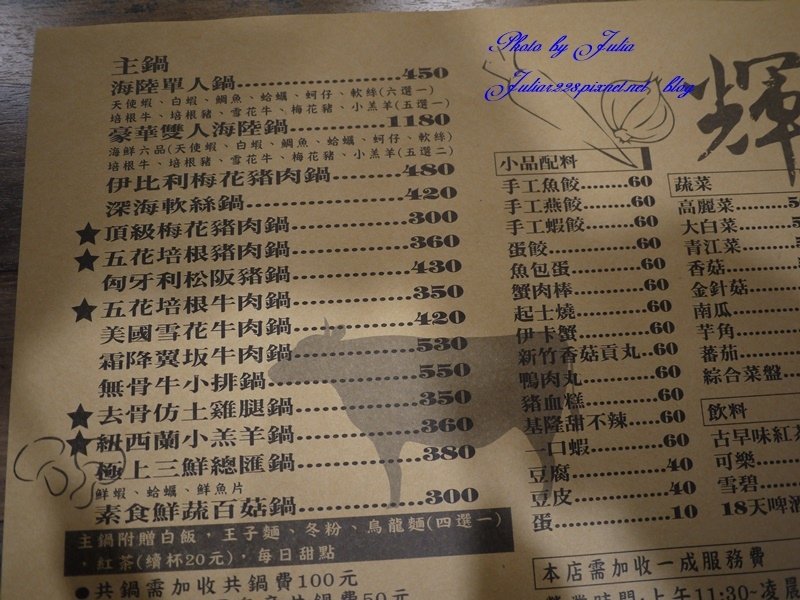 Photo by Julia
Juliar228pixnet.net blog
輝
主鍋
海陸單人鍋 450
天使蝦、白蝦、鯛魚、蛤蠣、蚵仔、軟絲(六選一)
培根牛、培根豬、雪花牛、梅花豬、小羔羊(五選一)
豪華雙人海陸鍋 1180
海鮮六品(天使蝦、白蝦、鯛魚、蛤蠣、蚵仔、軟絲)
培根牛、培根豬、雪花牛、梅花豬、小羔羊(五選二)
伊比利梅花豬肉鍋 480
深海軟絲鍋 420
★頂級梅花豬肉鍋 300
★五花培根豬肉鍋 360
匈牙利松阪豬鍋 430
★五花培根牛肉鍋 350
美國雪花牛肉鍋 420
霜降翼坂牛肉鍋 530
無骨牛小排鍋 550
★去骨仿土雞腿鍋 350
★紐西蘭小羔羊鍋 360
極上三鮮總匯鍋 380
鮮蝦、蛤蠣、鮮魚片
素食鮮蔬百菇鍋 300
主鍋附贈白飯，王子麵、冬粉、烏龍麵(四選一)
，紅茶(續杯20元)，每日甜點
●共鍋需加收共鍋費100元
小品配料
手工魚餃 60
手工燕餃 60
手工蝦餃 60
蛋餃 60
魚包蛋 60
蟹肉棒 60
起士燒 60
伊卡蟹 60
新竹香菇貢丸 60
鴨肉丸 60
豬血糕 60
基隆甜不辣 60
一口蝦 60
豆腐 40
豆皮 40
蛋 10
蔬菜
高麗菜
大白菜
青江菜
香菇
金針菇
南瓜
芋角
蕃茄
綜合菜盤
飲料
古早味紅茶
可樂
雪碧
18天啤酒
本店需加收一成服務費
營業時間:上午11:30~凌晨